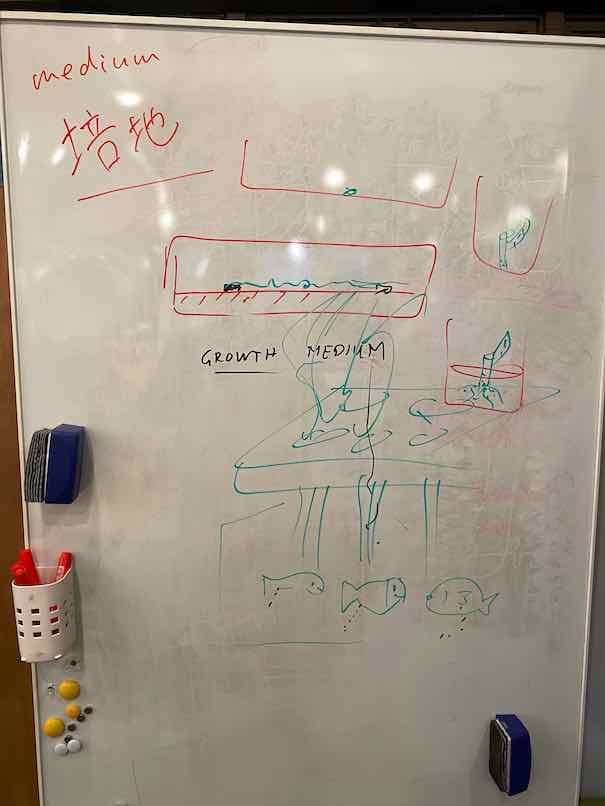 medium
培地
GROWTH MEDIUM